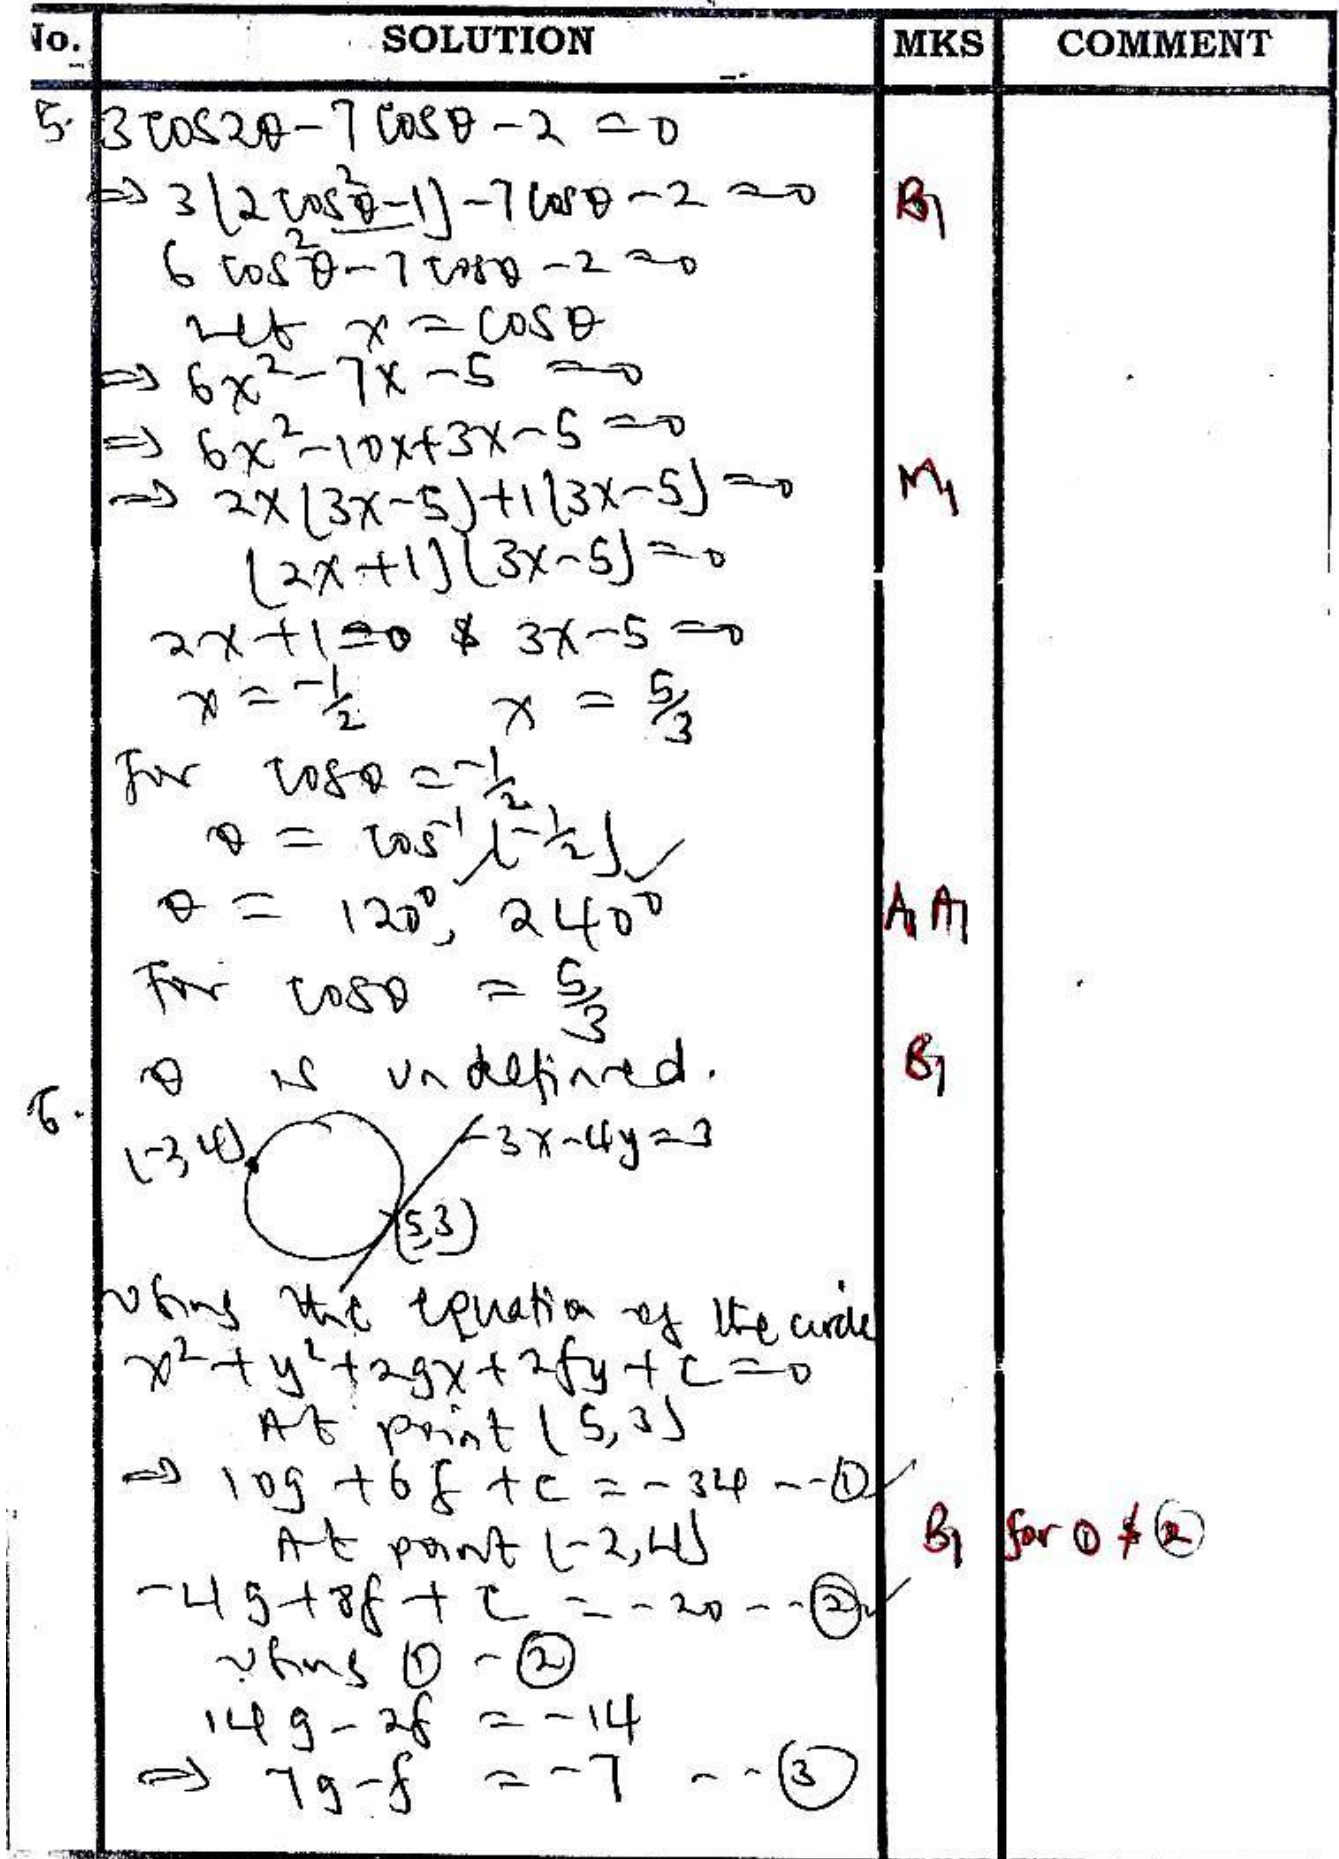 No. SOLUTION MKS COMMENT
5. 3 cos2θ - 7 cosθ - 2 = 0
⇒ 3(2cos²θ-1) - 7cosθ - 2 = 0 B1
6 cos²θ - 7 cosθ - 2 = 0
Let x = cosθ
⇒ 6x² - 7x - 5 = 0
⇒ 6x² - 10x + 3x - 5 = 0
⇒ 2x(3x-5) + 1(3x-5) = 0 M1
(2x+1)(3x-5) = 0
2x+1=0 & 3x-5=0
x = -1/2 x = 5/3
For cosθ = -1/2
θ = cos⁻¹(-1/2)
θ = 120°, 240° A1 A1
For cosθ = 5/3
θ is undefined. B1
6.
(-2,4) 3x-4y=3
(5,3)
Using the equation of the circle
x² + y² + 2gx + 2fy + c = 0
At point (5,3)
⇒ 10g + 6f + c = -34 --①
At point (-2,4) B1 for ① & ②
-4g + 8f + c = -20 --②
Using ① - ②
14g - 2f = -14
⇒ 7g - f = -7 --③